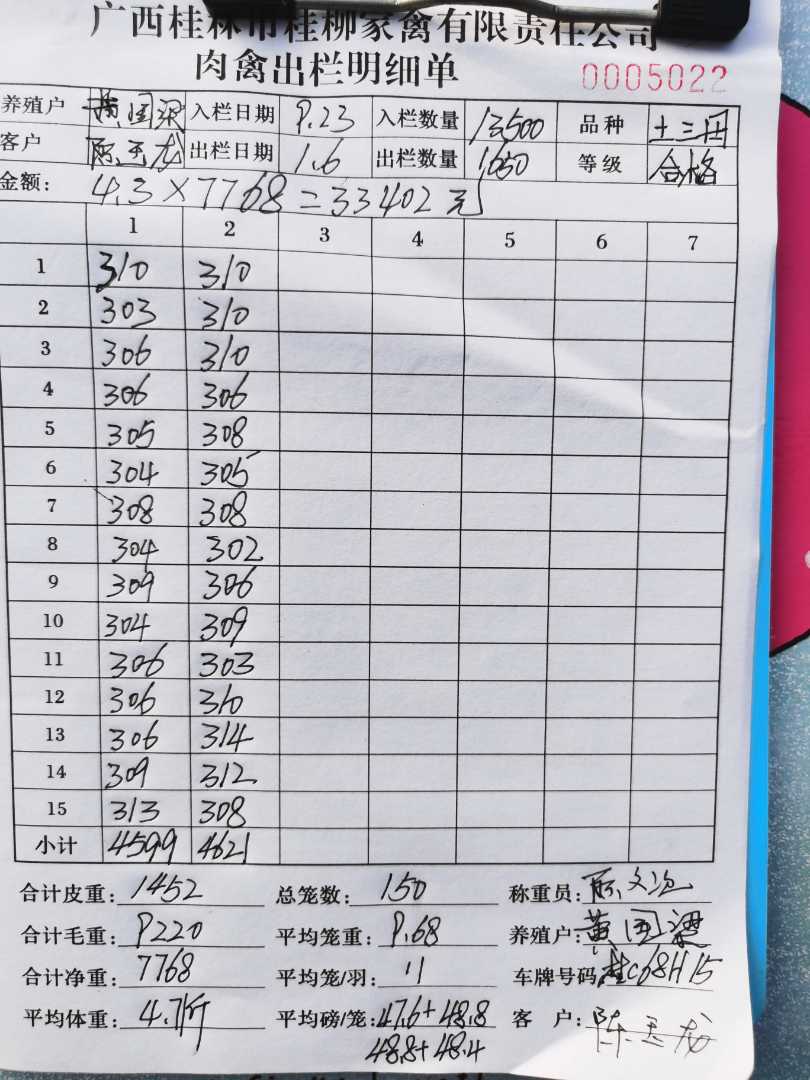 广西桂林市桂柳家禽有限责任公司
肉禽出栏明细单 0005022
养殖户 黄国梁 入栏日期 9.23 入栏数量 13500 品种 十三田
客户 陈玉龙 出栏日期 1.6 出栏数量 1650 等级 合格
金额: 4.3×7768=33402元
1 2 3 4 5 6 7
1 310 310
2 303 310
3 306 310
4 306 306
5 305 308
6 304 305
7 308 308
8 304 302
9 309 306
10 304 309
11 306 303
12 306 310
13 306 314
14 309 312
15 313 308
小计 4599 4621
合计皮重: 1452 总笼数: 150 称重员:
合计毛重: 9220 平均笼重: 9.68 养殖户: 黄国梁
合计净重: 7768 平均笼/羽: 11 车牌号码: 桂C68H15
平均体重: 4.7斤 平均磅/笼: 47.6+48.8 客 户: 陈玉龙
48.8+48.4